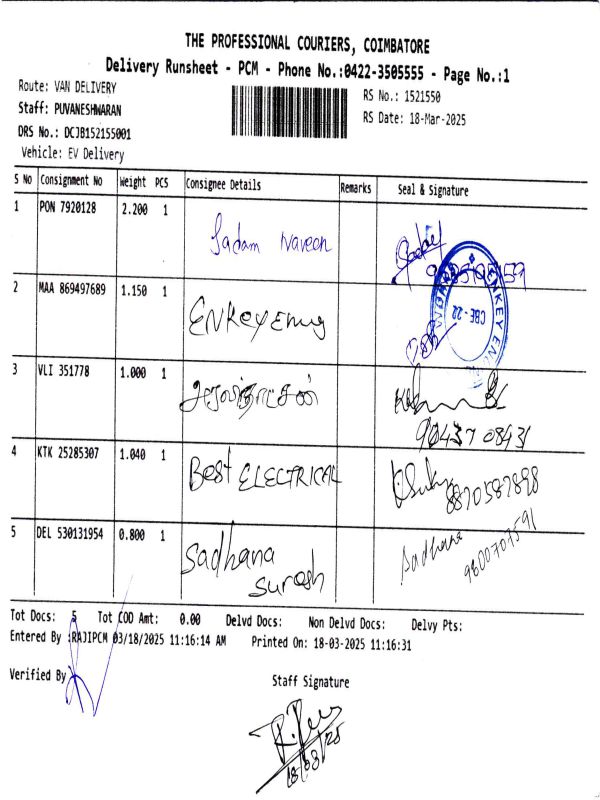 THE PROFESSIONAL COURIERS, COIMBATORE
Delivery Runsheet - PCM - Phone No.:0422-3505555 - Page No.:1
Route: VAN DELIVERY
RS No.: 1521550
Staff: PUVANESHWARAN
RS Date: 18-Mar-2025
DRS No.: DCJB152155001
Vehicle: EV Delivery
S No Consignment No Weight PCS Consignee Details Remarks Seal & Signature
1 PON 7920128 2.200 1 Sadam Naveen
2 MAA 869497689 1.150 1 ENKEY Engg
ENKEY EN
CBE - 22
3 VLI 351778 1.000 1
90437 08431
4 KTK 25285307 1.040 1 Best ELECTRICAL
8870587898
5 DEL 530131954 0.800 1 Sadhana Suresh Sadhana
9600707591
Tot Docs: 5 Tot COD Amt: 0.00 Delvd Docs: Non Delvd Docs: Delvy Pts:
Entered By :RAJIPCM 03/18/2025 11:16:14 AM Printed On: 18-03-2025 11:16:31
Verified By
Staff Signature
18/03/25